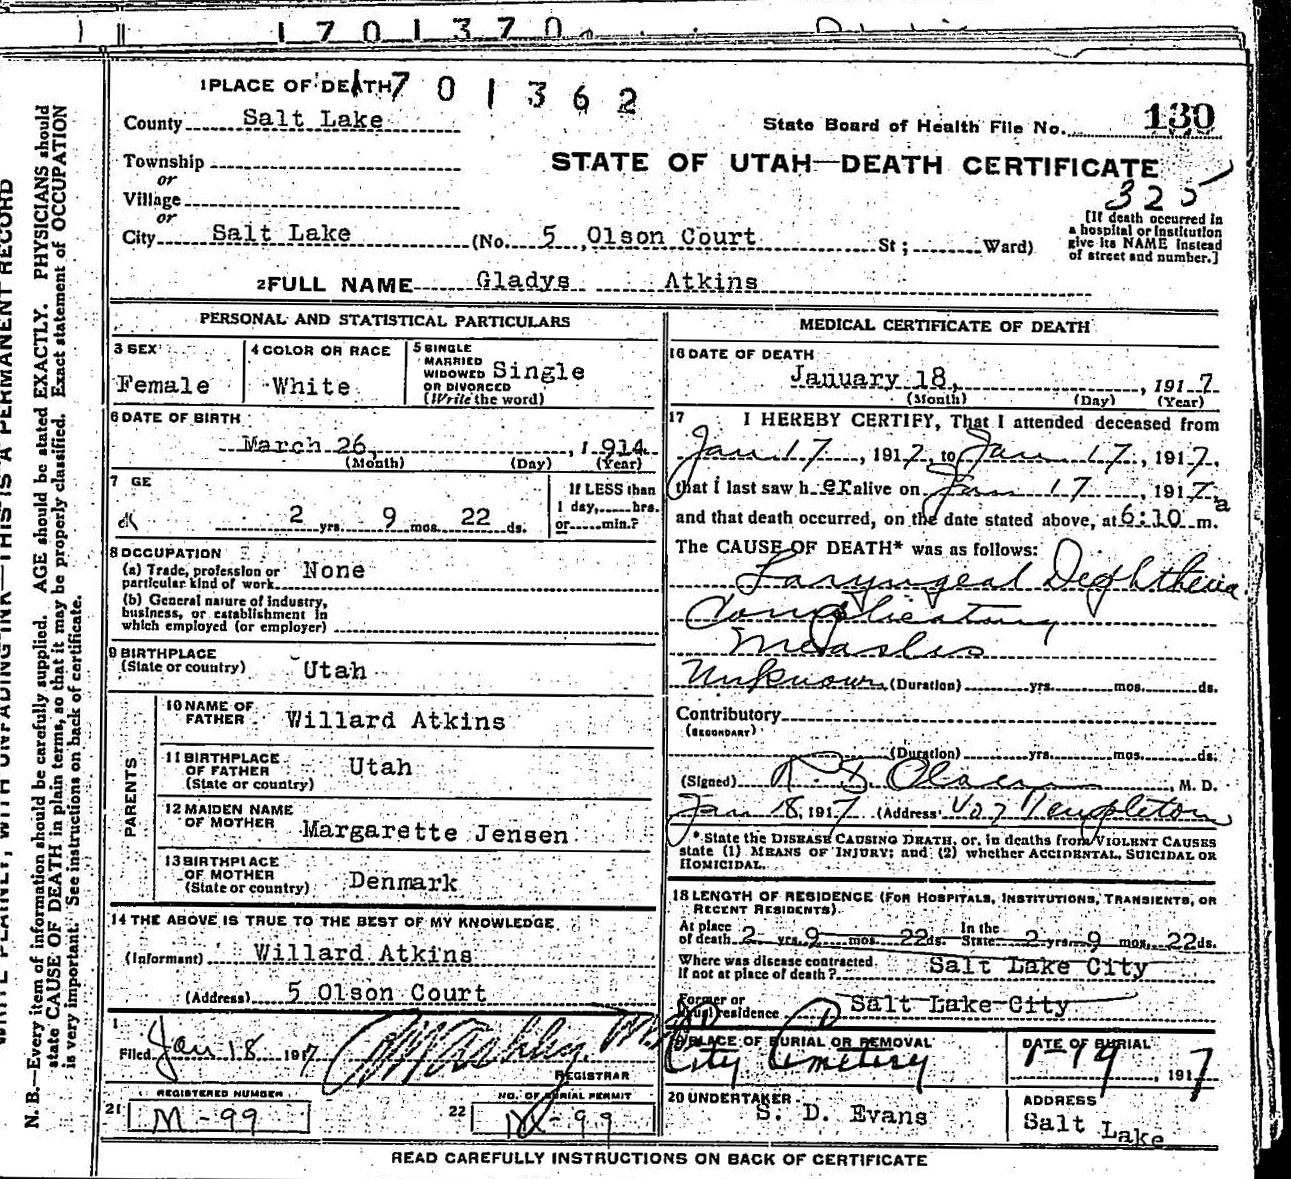 1701370
1 PLACE OF DEATH 1701362
County Salt Lake
State Board of Health File No. 130
Township
STATE OF UTAH—DEATH CERTIFICATE
or
325
Village
or
[If death occurred in
a hospital or institution
give its NAME instead
of street and number.]
City Salt Lake (No. 5 Olson Court St; Ward)
2 FULL NAME Gladys Atkins
PERSONAL AND STATISTICAL PARTICULARS
3 SEX
Female
4 COLOR OR RACE
White
5 SINGLE
MARRIED
WIDOWED Single
OR DIVORCED
(Write the word)
6 DATE OF BIRTH
March 26, 1914
(Month) (Day) (Year)
7 GE
2 yrs. 9 mos. 22 ds.
If LESS than
1 day, hrs.
or min.?
8 OCCUPATION
(a) Trade, profession or None
particular kind of work
(b) General nature of industry,
business, or establishment in
which employed (or employer)
9 BIRTHPLACE
(State or country) Utah
PARENTS
10 NAME OF
FATHER Willard Atkins
11 BIRTHPLACE
OF FATHER Utah
(State or country)
12 MAIDEN NAME
OF MOTHER Margarette Jensen
13 BIRTHPLACE
OF MOTHER
(State or country) Denmark
14 THE ABOVE IS TRUE TO THE BEST OF MY KNOWLEDGE
(Informant) Willard Atkins
(Address) 5 Olson Court
Filed Jan 18 1917
REGISTRAR
REGISTERED NUMBER
21 M-99
NO. OF BURIAL PERMIT
22 M-99
MEDICAL CERTIFICATE OF DEATH
16 DATE OF DEATH
January 18, 1917
(Month) (Day) (Year)
17 I HEREBY CERTIFY, That I attended deceased from
Jan 17, 1917, to Jan 17, 1917,
that I last saw h er alive on Jan 17, 1917,
and that death occurred, on the date stated above, at 6:10 a m.
The CAUSE OF DEATH* was as follows:
Laryngeal Diphtheria
Complicating
Measles
Unknown (Duration) yrs. mos. ds.
Contributory
(SECONDARY)
(Duration) yrs. mos. ds.
(Signed) M. D.
Jan 18, 1917 (Address Templeton
*State the DISEASE CAUSING DEATH, or, in deaths from VIOLENT CAUSES
state (1) MEANS OF INJURY; and (2) whether ACCIDENTAL, SUICIDAL OR
HOMICIDAL.
18 LENGTH OF RESIDENCE (FOR HOSPITALS, INSTITUTIONS, TRANSIENTS, OR
RECENT RESIDENTS).
At place In the
of death 2 yrs. 9 mos. 22 ds. State 2 yrs. 9 mos. 22 ds.
Where was disease contracted.
If not at place of death? Salt Lake City
Former or
usual residence Salt Lake City
19 PLACE OF BURIAL OR REMOVAL
City Cemetery
DATE OF BURIAL
1-19, 1917
20 UNDERTAKER
S. D. Evans
ADDRESS
Salt Lake
READ CAREFULLY INSTRUCTIONS ON BACK OF CERTIFICATE
WRITE PLAINLY, WITH UNFADING INK—THIS IS A PERMANENT RECORD
N. B.—Every item of information should be carefully supplied. AGE should be stated EXACTLY. PHYSICIANS should
state CAUSE OF DEATH in plain terms, so that it may be properly classified. Exact statement of OCCUPATION
is very important. See instructions on back of certificate.